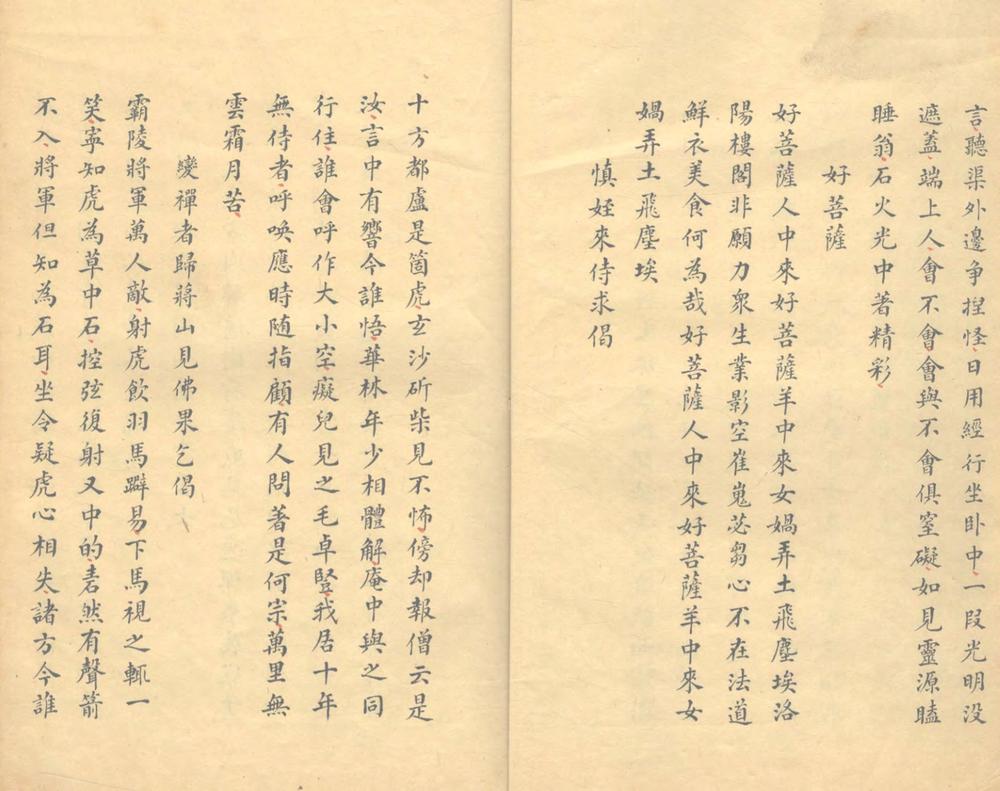 言聽渠外邊爭揑怪日用經行坐卧中一段光明没
遮蓋端上人會不會會與不會俱窒礙如見靈源瞌
睡翁石火光中著精彩
好菩薩
好菩薩人中來好菩薩羊中來女媧弄土飛塵埃洛
陽樓閣非願力衆生業影空崔嵬苾芻心不在法道
鮮衣美食何為哉好菩薩人中來好菩薩羊中來女
媧弄土飛塵埃
慎姪來侍求偈
十方都盧是箇虎玄沙斫柴見不怖傍却報僧云是
汝言中有響今誰悟華林年少相體解庵中與之同
行住誰會呼作大小空癡兒見之毛卓豎我居十年
無侍者呼喚應時随指顧有人問著是何宗萬里無
雲霜月苦
變禪者歸蔣山見佛果乞偈
霸陵將軍萬人敵射虎飲羽馬辟易下馬視之輒一
笑寧知虎為草中石控弦復射又中的砉然有聲箭
不入將軍但知為石耳坐令疑虎心相失諸方今誰